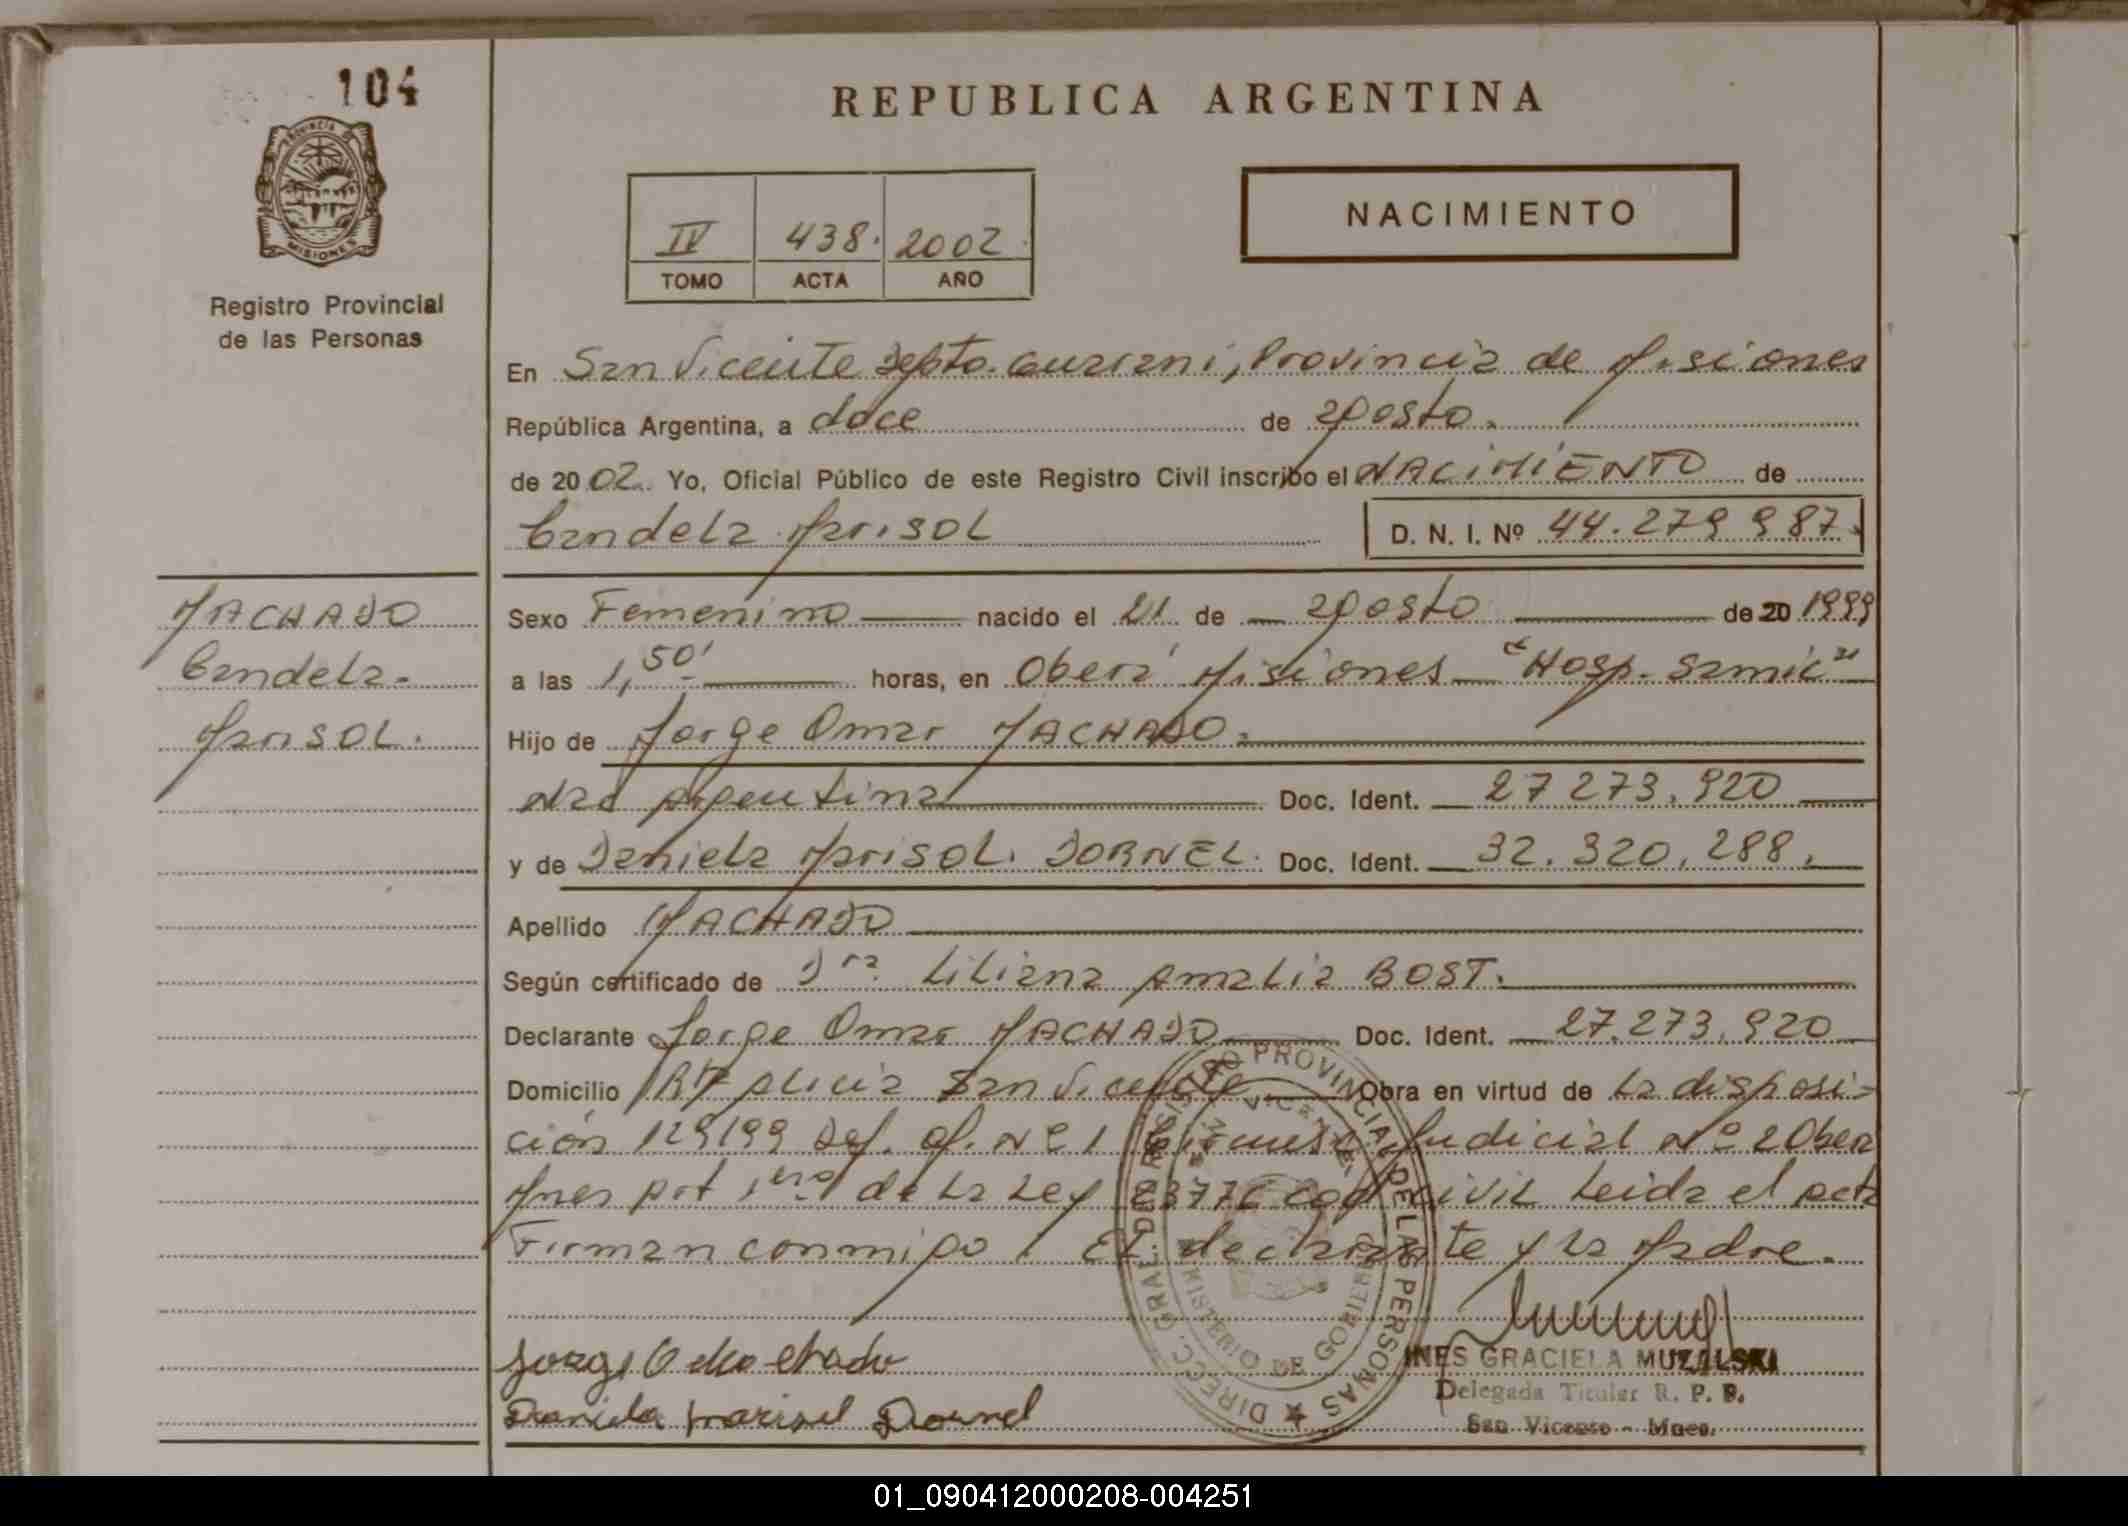 104
PROVINCIA DE
MISIONES
Registro Provincial
de las Personas
REPUBLICA ARGENTINA
IV 438. 2002
TOMO ACTA AÑO
NACIMIENTO
En San Vicente Depto. Guarani, Provincia de Misiones
República Argentina, a doce de agosto.
de 2002. Yo, Oficial Público de este Registro Civil inscribo el NACIMIENTO de
Candela Marisol
D. N. I. Nº 44.279 987.
MACHADO
Candela.
Marisol.
Sexo Femenino nacido el 21 de agosto de 20 1999
a las 1,50' horas, en Oberá Misiones "Hosp. Samic"
Hijo de Jorge Omar MACHADO.
Nac Argentina Doc. Ident. 27 273.920
y de Daniela Marisol. DORNEL. Doc. Ident. 32.320.288.
Apellido MACHADO
Según certificado de Dra. Liliana Amalia BOST.
Declarante Jorge Omar MACHADO Doc. Ident. 27.273.920
Domicilio Alicia San Vicente Obra en virtud de La disposi-
ción 129/99 Def. of. Nº 1 Judicial Nº 2 Obera
Mnes Art 1ero de La Ley civil Leida el acta
Firman conmigo. El declarante y la Madre.
DIRECC. GRAL. DEL REGISTRO PROVINCIAL DE LAS PERSONAS
SAN VICENTE
MINISTERIO DE GOBIERNO
Daniela marisol Dornel
INES GRACIELA MUZALSKI
Delegada Titular R. P. P.
San Vicente - Mnes.
01_090412000208-004251